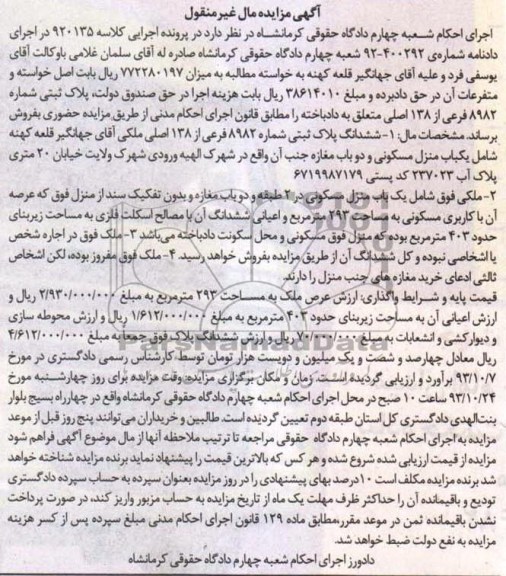 آگهی مزایده مال غیر منقول
اجرای احکام شعبه چهارم دادگاه حقوقی کرمانشاه در نظر دارد در پرونده اجرایی کلاسه ۹۲۰۱۳۵ در اجرای
دادنامه شماره‌ی ۴۰۰۲۹۲-۹۲ شعبه چهارم دادگاه حقوقی کرمانشاه صادره له آقای سلمان غلامی باوکالت آقای
یوسفی فرد و علیه آقای جهانگیر قلعه کهنه به خواسته مطالبه به میزان ۷۷۲۲۸۰۱۹۷ ریال بابت اصل خواسته و
متفرعات آن در حق دادبرده و مبلغ ۳۸۶۱۴۰۱۰ ریال بابت هزینه اجرا در حق صندوق دولت، پلاک ثبتی شماره
۸۹۸۲ فرعی از ۱۳۸ اصلی متعلق به دادباخته را مطابق قانون اجرای احکام مدنی از طریق مزایده حضوری بفروش
برساند. مشخصات مال: ۱- ششدانگ پلاک ثبتی شماره ۸۹۸۲ فرعی از ۱۳۸ اصلی ملکی آقای جهانگیر قلعه کهنه
شامل یکباب منزل مسکونی و دو باب مغازه جنب آن واقع در شهرک الهیه ورودی شهرک ولایت خیابان ۲۰ متری
پلاک آب ۲۳۷۰۲۳ کد پستی ۶۷۱۹۹۸۷۱۷۹
۲- ملکی فوق شامل یک باب منزل مسکونی در ۲ طبقه و دو باب مغازه و بدون تفکیک سند از منزل فوق که عرصه
آن با کاربری مسکونی به مساحت ۲۹۳ مترمربع و اعیانی ششدانگ آن با مصالح اسکلت فلزی به مساحت زیربنای
حدود ۴۰۳ مترمربع بوده که منزل فوق مسکونی و محل سکونت دادباخته می‌باشد ۳- ملک فوق در اجاره شخص
یا اشخاصی نبوده و کل ششدانگ آن از طریق مزایده بفروش خواهد رسید. ۴- ملک فوق مفروز بوده، لکن اشخاص
ثالثی ادعای خرید مغازه های جنب منزل را دارند.
قیمت پایه و شرایط واگذاری: ارزش عرص ملک به مساحت ۲۹۳ مترمربع به مبلغ ۲/۹۳۰/۰۰۰/۰۰۰ ریال و
ارزش اعیانی آن به مساحت زیربنای حدود ۴۰۳ مترمربع به مبلغ ۱/۶۱۲/۰۰۰/۰۰۰ ریال و ارزش محوطه سازی
و دیوارکشی و انشعابات به مبلغ ۷۰/۰۰۰/۰۰۰ ریال و ارزش ششدانگ پلاک فوق جمعا به مبلغ ۴/۶۱۲/۰۰۰/۰۰۰
ریال معادل چهارصد و شصت و یک میلیون و دویست هزار تومان توسط کارشناس رسمی دادگستری در مورخ
۹۳/۱۰/۷ برآورد و ارزیابی گردیده است. زمان و مکان برگزاری مزایده وقت مزایده برای روز چهارشنبه مورخ
۹۳/۱۰/۲۴ ساعت ۱۰ صبح در محل اجرای احکام شعبه چهارم دادگاه حقوقی کرمانشاه واقع در چهارراه بسیج بلوار
بنت‌الهدی دادگستری کل استان طبقه دوم تعیین گردیده است. طالبین و خریداران می‌توانند پنج روز قبل از موعد
مزایده به اجرای احکام شعبه چهارم دادگاه حقوقی مراجعه تا ترتیب ملاحظه آنها از مال موضوع آگهی فراهم شود
مزایده از قیمت ارزیابی شده شروع شده و هر کس که بالاترین قیمت را پیشنهاد نماید برنده مزایده شناخته خواهد
شد برنده مزایده مکلف است ۱۰درصد بهای پیشنهادی را در روز مزایده بعنوان سپرده به حساب سپرده دادگستری
تودیع و باقیمانده آن را حداکثر ظرف مهلت یک ماه از تاریخ مزایده به حساب مزبور واریز کند، در صورت پرداخت
نشدن باقیمانده ثمن در موعد مقرر،مطابق ماده ۱۲۹ قانون اجرای احکام مدنی مبلغ سپرده پس از کسر هزینه
مزایده به نفع دولت ضبط خواهد شد.
دادورز اجرای احکام شعبه چهارم دادگاه حقوقی کرمانشاه